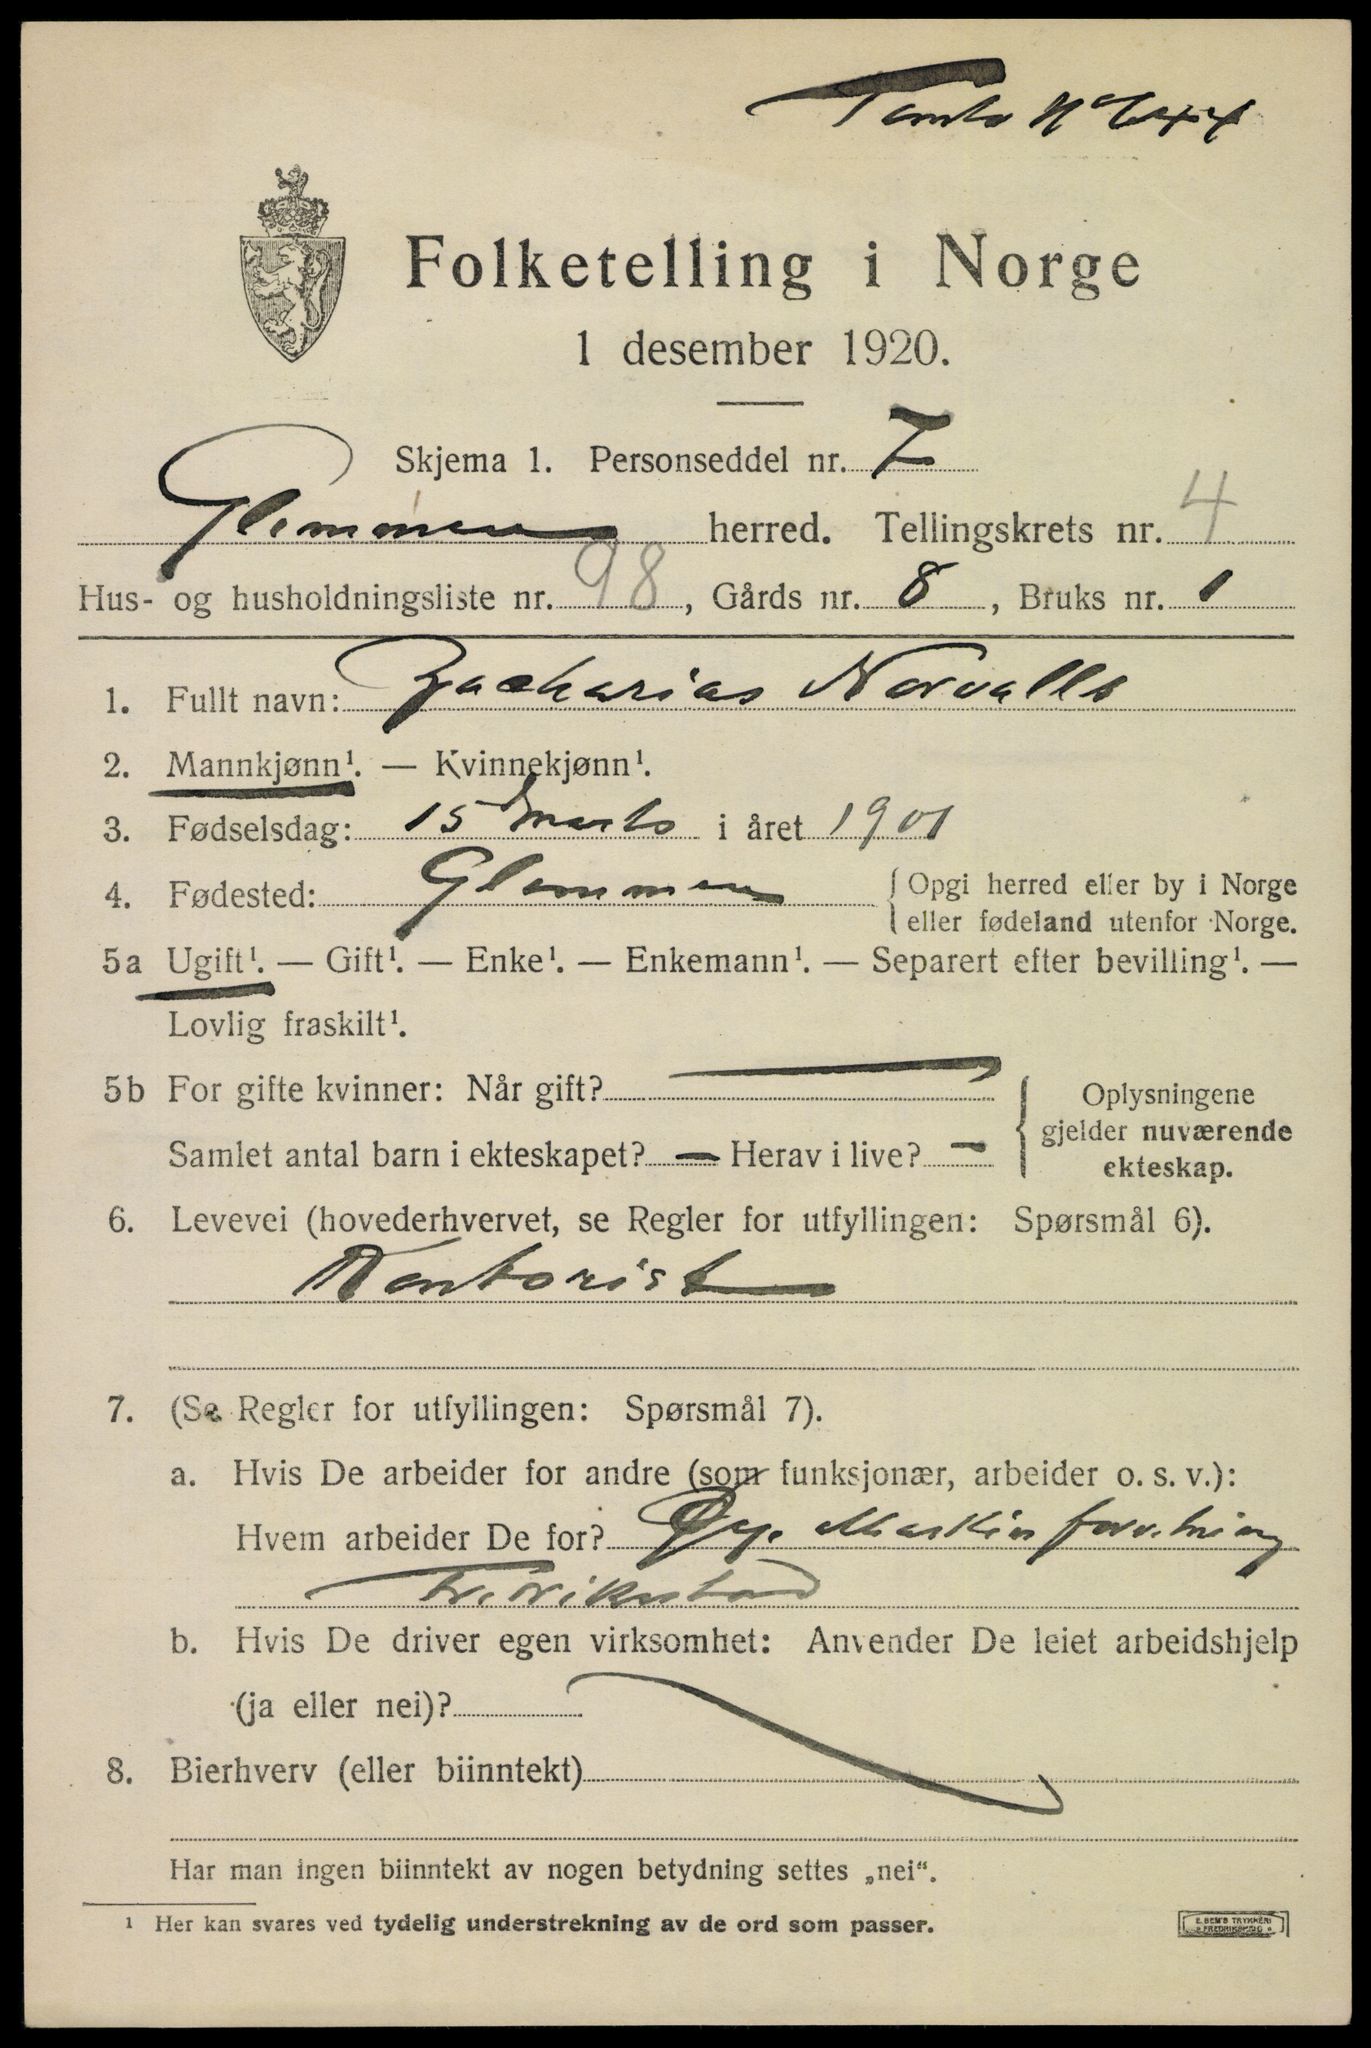 Tomte No
Folketelling i Norge
1 desember 1920.
Skjema 1. Personseddel nr. 7
Glemmen herred. Tellingskrets nr. 4
Hus- og husholdningsliste nr. 98, Gårds nr. 8, Bruks nr. 1
1. Fullt navn: Zacharias Norvalls
2. Mannkjønn¹. — Kvinnekjønn¹.
3. Fødselsdag: 15 Marts i året 1901
4. Fødested: Glemmen { Opgi herred eller by i Norge
eller fødeland utenfor Norge.
5a Ugift¹. — Gift¹. — Enke¹. — Enkemann¹. — Separert efter bevilling¹. —
Lovlig fraskilt¹.
5b For gifte kvinner: Når gift? —
Samlet antal barn i ekteskapet? — Herav i live? —
{ Oplysningene
gjelder nuværende
ekteskap.
6. Levevei (hovederhvervet, se Regler for utfyllingen: Spørsmål 6).
Kontorist
7. (Se Regler for utfyllingen: Spørsmål 7).
a. Hvis De arbeider for andre (som funksjonær, arbeider o. s. v.):
Hvem arbeider De for? Maskinforretning
Fredrikstad
b. Hvis De driver egen virksomhet: Anvender De leiet arbeidshjelp
(ja eller nei)?
8. Bierhverv (eller biinntekt)
Har man ingen biinntekt av nogen betydning settes „nei“.
¹ Her kan svares ved tydelig understrekning av de ord som passer.
E. SEM'S TRYKKERI
FREDRIKSHALD